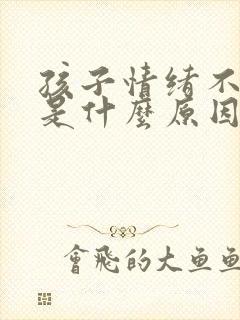 孩子情绪不
是什麼原因
會飛的大鱼鱼